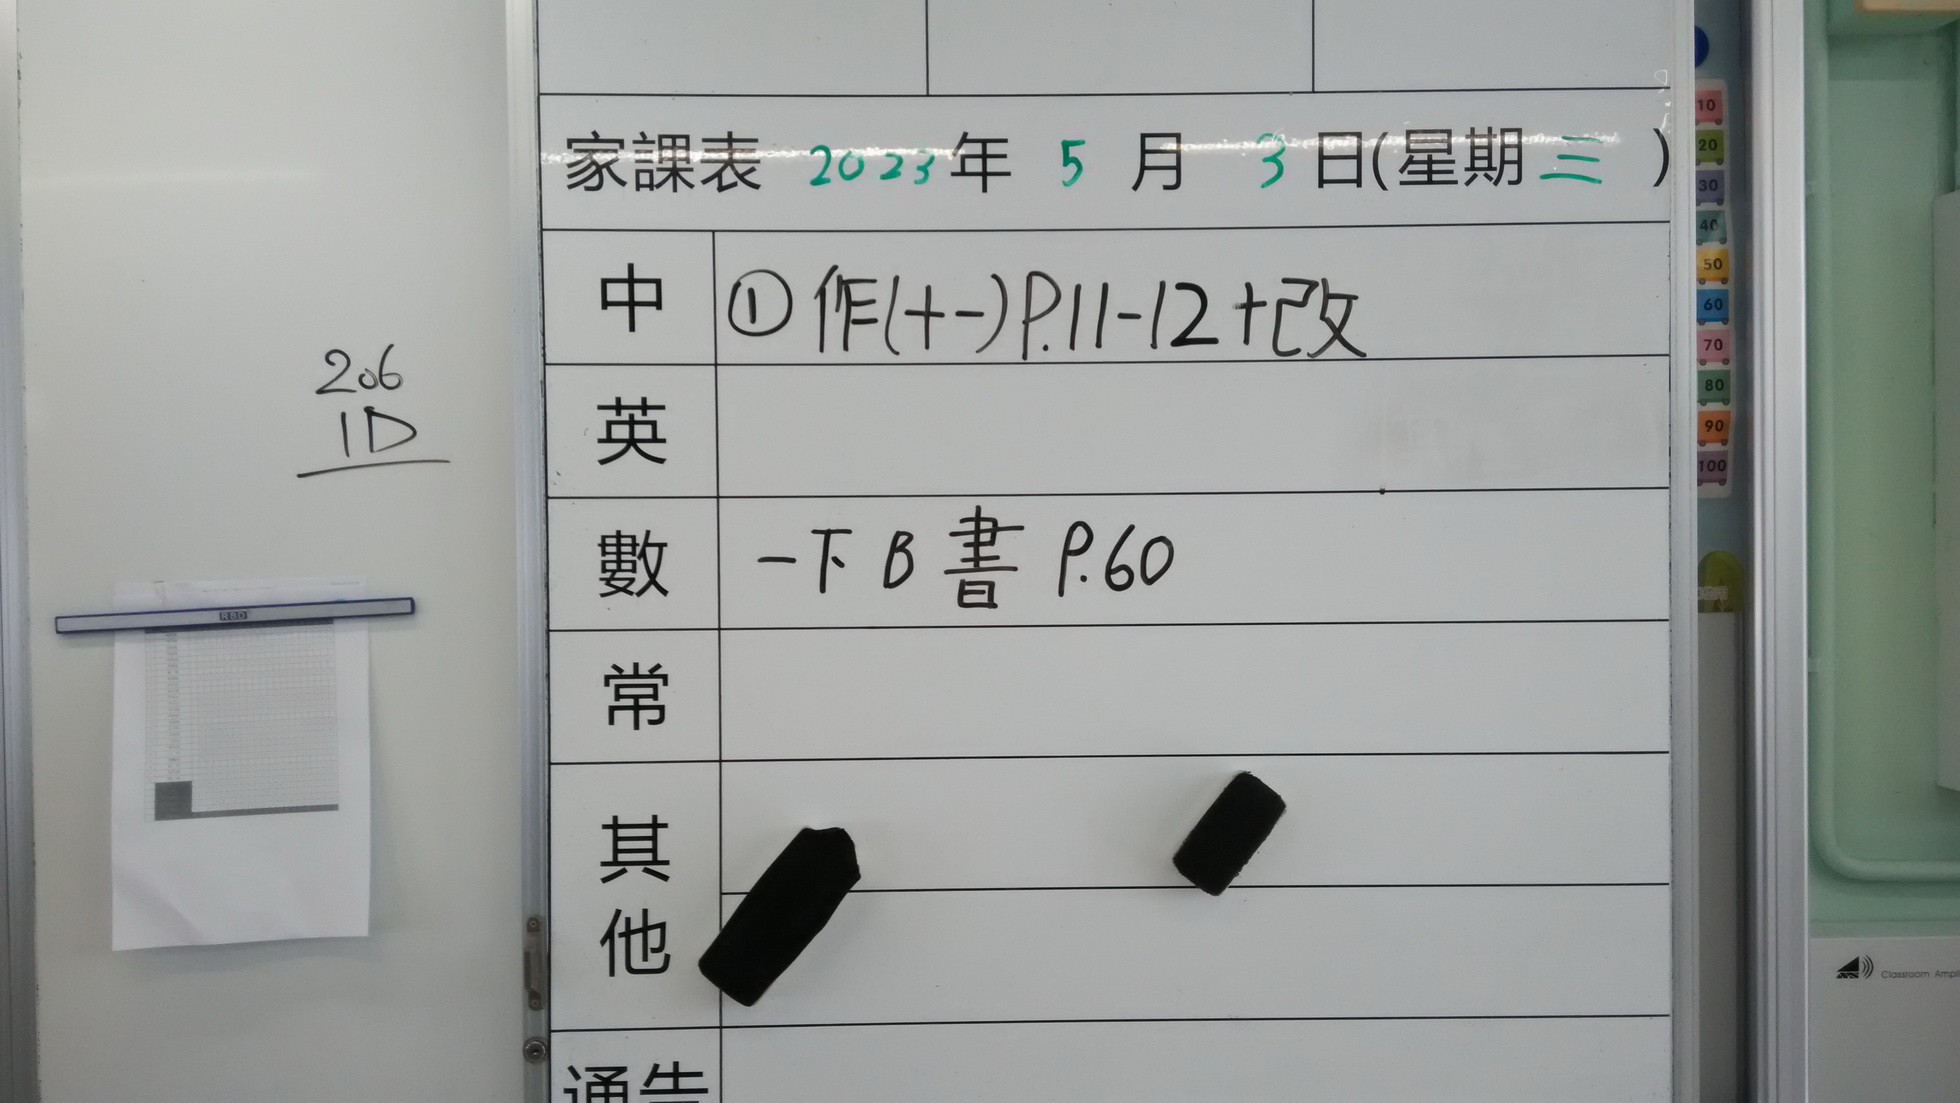 家課表 2023年 5 月 3 日(星期三)
中 ① 作(十一)P.11-12+改
英
數 一下 B 書 P.60
常
其他
通告
206
1D
RBD
10
20
30
40
50
60
70
80
90
100